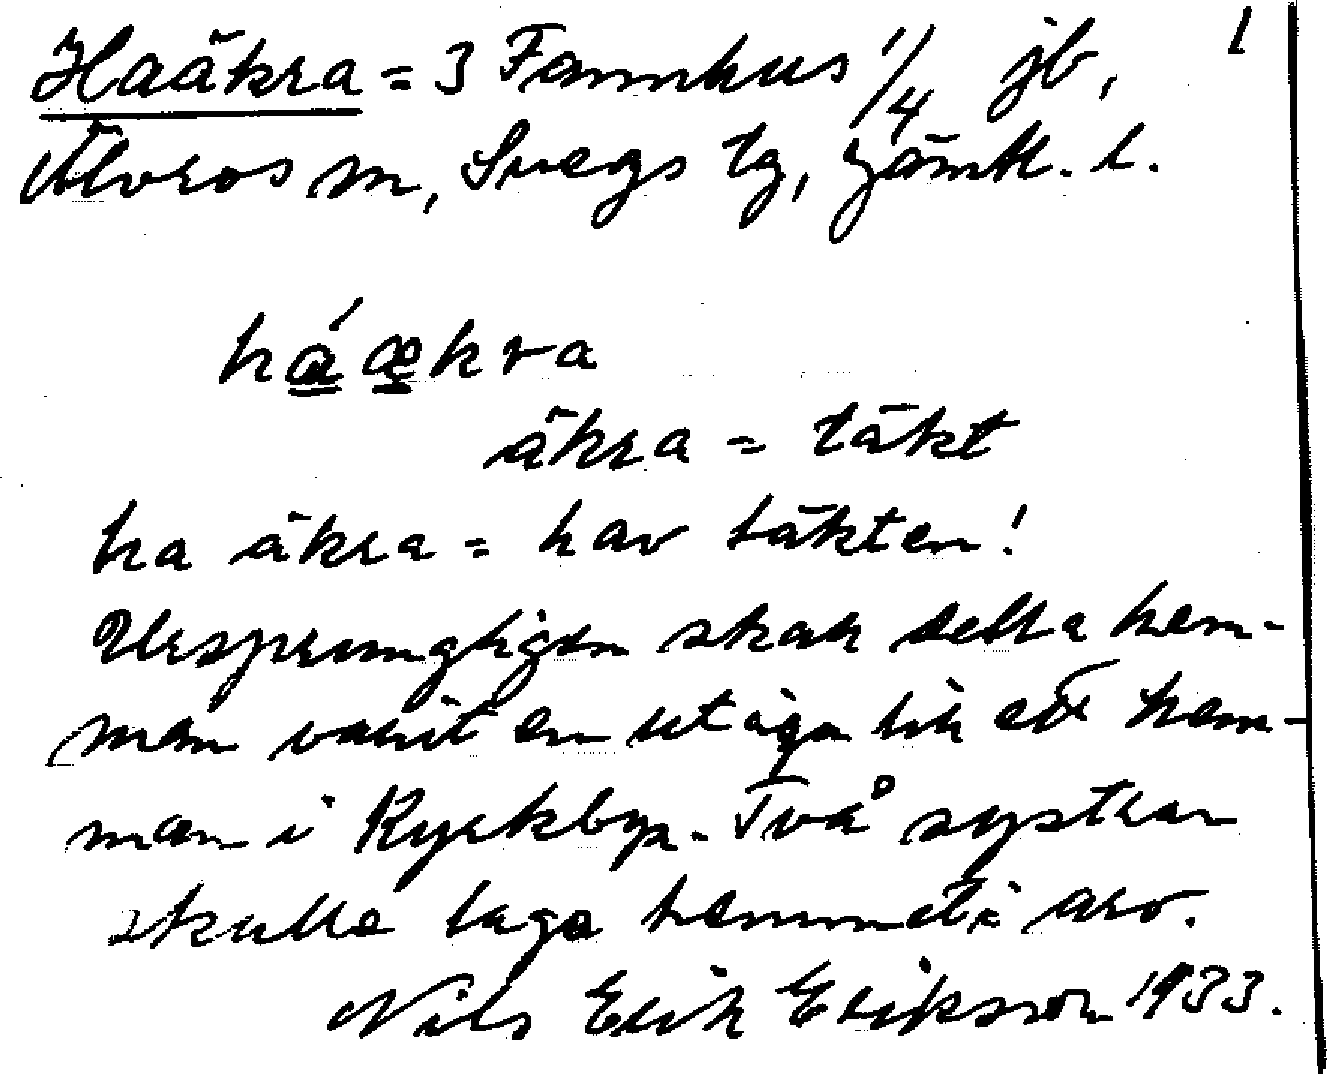 Haäkra = 3 Fannhus 1/4 jb, 1
Älvros sn, Svegs tg, Jämtl. l.
há̱æ̱kra
äkra = täkt
ha äkra = hav täkten!
Ursprungligen skall detta hem-
man varit en utäga till ett hem-
man i Kyrkbyn. Två systrar
skulle taga hemmet i arv.
Nils Erik Eriksson 1933.